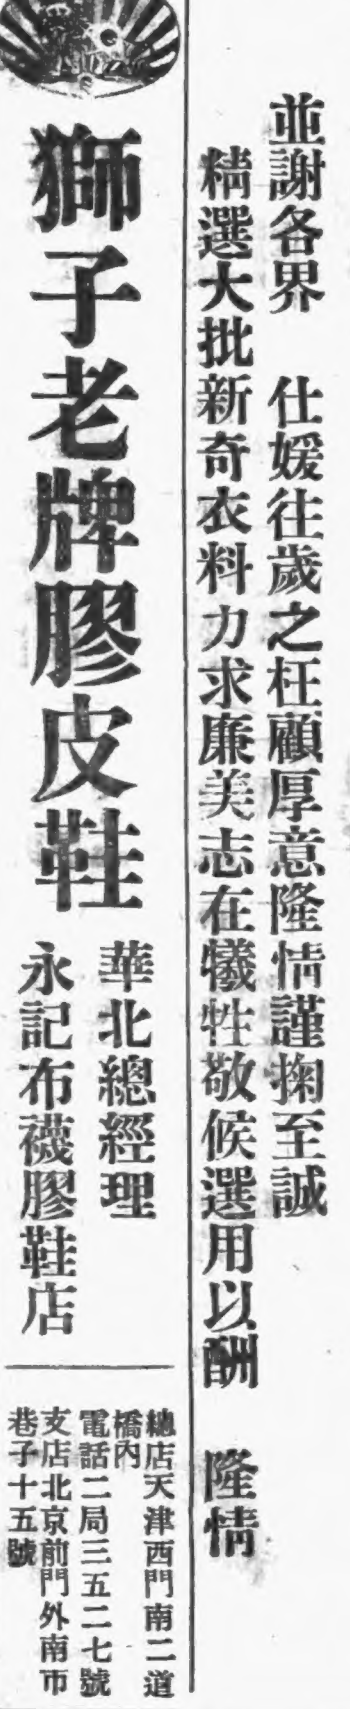 並謝各界　仕媛往歲之枉顧厚意隆情謹掬至誠
精選大批新奇衣料力求廉美志在犧牲敬候選用以酬　隆情
獅子老牌膠皮鞋
華北總經理
永記布襪膠鞋店
總店天津西門南二道
橋內
電話二局三五二七號
支店北京前門外南市
巷子十五號